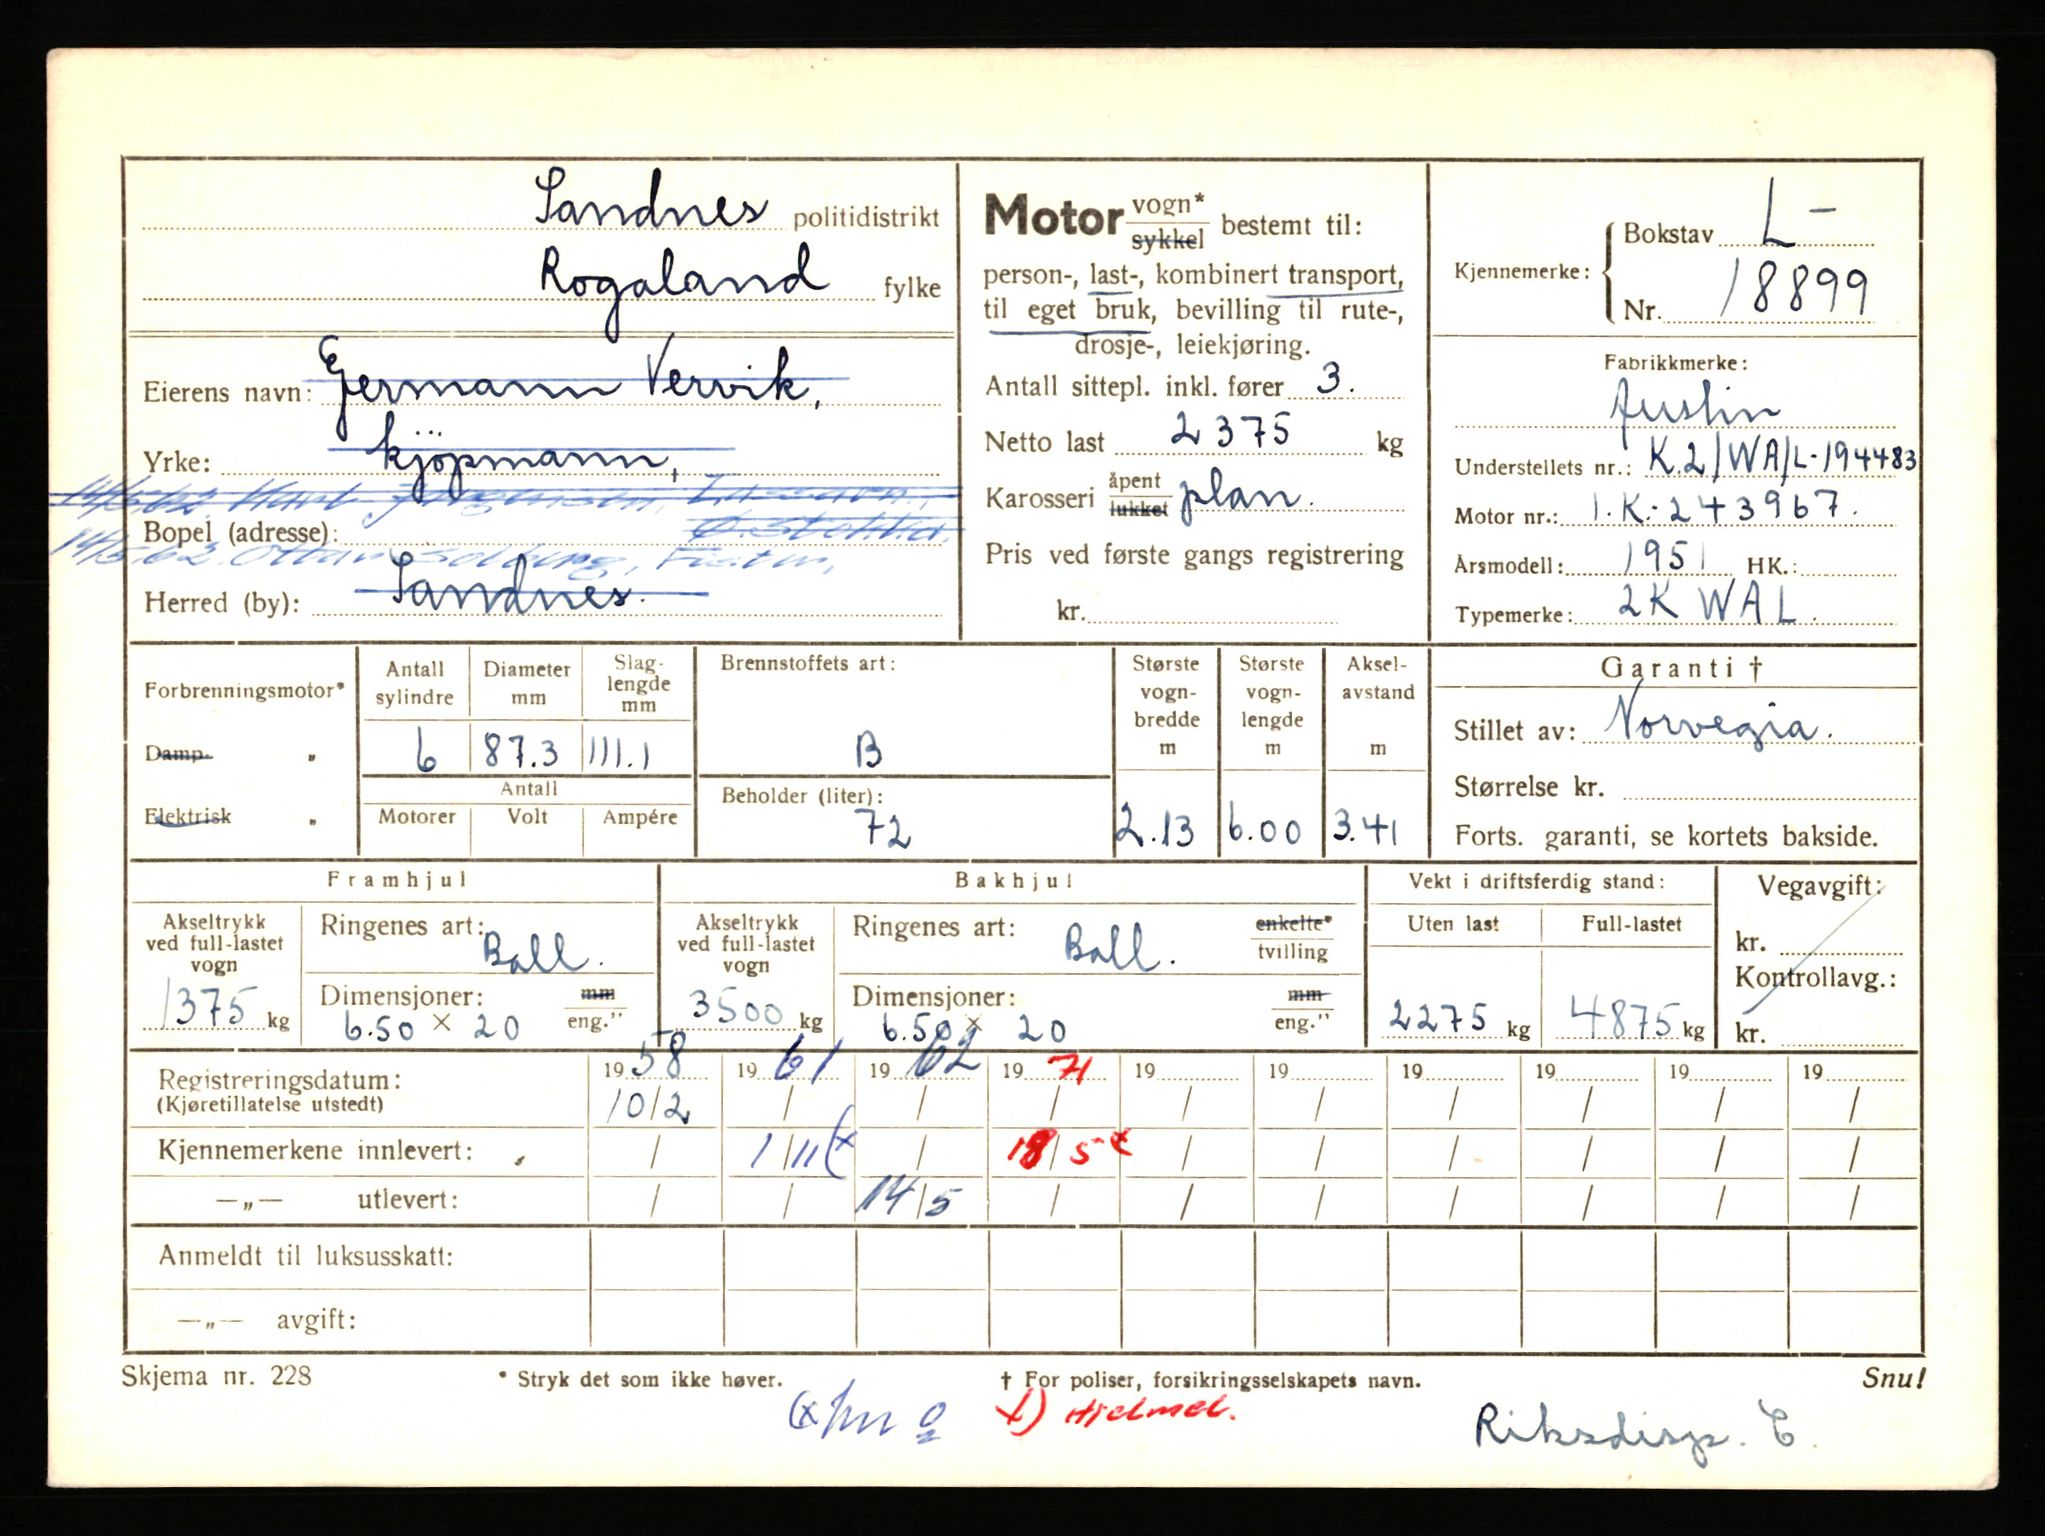 Sandnes politidistrikt
Rogaland fylke
Eierens navn: Germann Vervik,
Yrke: kjöpmann,
Bopel (adresse):
14/5.62. Ottar Solberg, Fister,
Herred (by): Sandnes.
Motor vogn* sykkel bestemt til:
person-, last-, kombinert transport,
til eget bruk, bevilling til rute-,
drosje-, leiekjøring.
Antall sittepl. inkl. fører 3.
Netto last 2375 kg
Karosseri åpent lukket plan.
Pris ved første gangs registrering
kr.
Kjennemerke: Bokstav L-
Nr. 18899
Fabrikkmerke:
Austin
Understellets nr.: K.2/WA/L-194483
Motor nr.: 1.K.-243967.
Årsmodell: 1951 HK.:
Typemerke: 2K WAL.
Forbrenningsmotor*
Damp- „
Elektrisk „
Antall sylindre 6
Diameter mm 87.3
Slag-lengde mm 111.1
Antall
Motorer Volt Ampére
Brennstoffets art:
B
Beholder (liter):
72
Største vogn-bredde m 2.13
Største vogn-lengde m 6.00
Aksel-avstand m 3.41
Garanti †
Stillet av: Norvegia.
Størrelse kr.
Forts. garanti, se kortets bakside.
Framhjul
Akseltrykk ved full-lastet vogn 1375 kg
Ringenes art: Ball.
Dimensjoner: mm eng."
6.50 × 20
Bakhjul
Akseltrykk ved full-lastet vogn 3500 kg
Ringenes art: Ball. enkelte* tvilling
Dimensjoner: mm eng."
6.50 × 20
Vekt i driftsferdig stand:
Uten last Full-lastet
2275 kg 4875 kg
Vegavgift:
kr.
Kontrollavg.:
kr.
Registreringsdatum: 1958 1961 1962 1971 19 19 19 19 19 19
(Kjøretillatelse utstedt) 10/2 / / / / / / / / /
Kjennemerkene innlevert: / 1/11 (x / 18/5 x / / / / / /
—„— utlevert: / / 14/5 / / / / / / /
Anmeldt til luksusskatt:
—„— avgift:
Skjema nr. 228 * Stryk det som ikke høver. † For poliser, forsikringsselskapets navn. Snu!
x) Hjelmel.
Riksdisp. C.